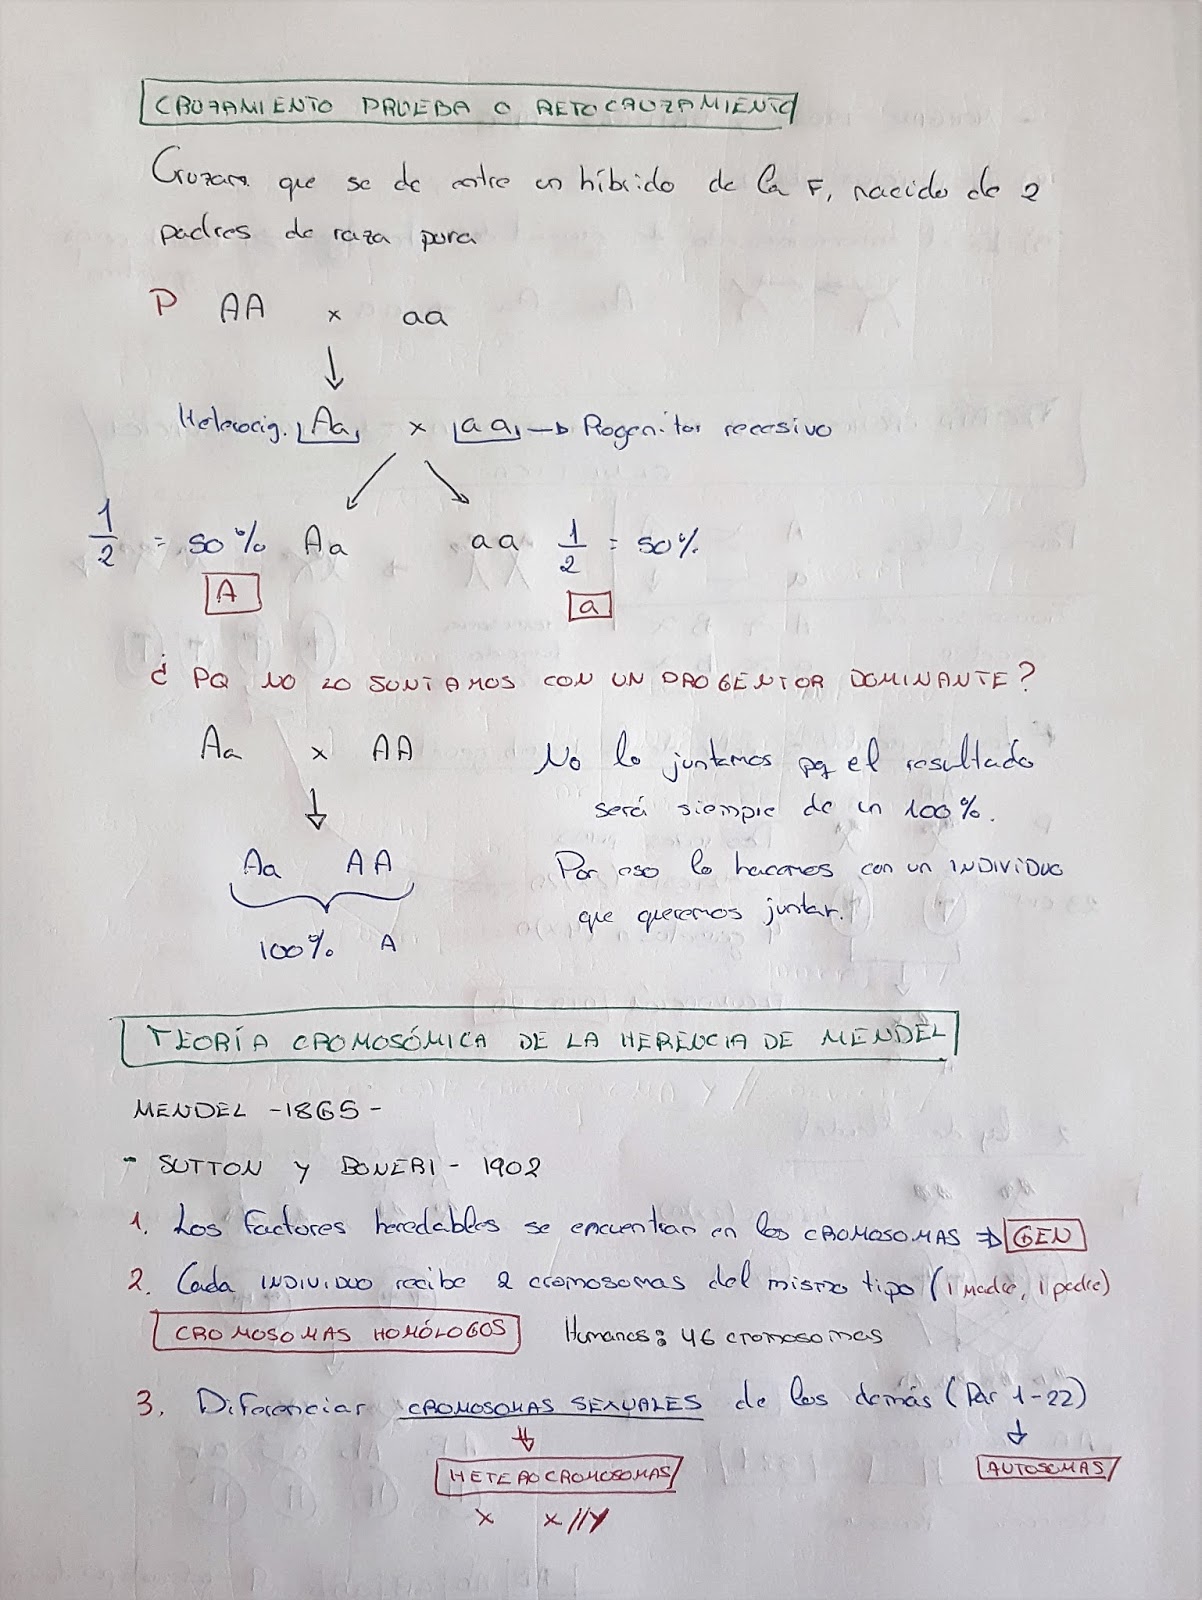 CRUZAMIENTO PRUEBA O RETOCRUZAMIENTO
Cruzam. que se de entre un híbrido de la F1 nacido de 2
padres de raza pura
P AA x aa
Heterocig. Aa x aa → Progenitor recesivo
1/2 = 50% Aa aa 1/2 = 50%
A a
¿ PQ NO LO JUNTAMOS CON UN PROGENTOR DOMINANTE?
Aa x AA
No lo juntamos pq el resultado
será siempre de un 100%.
Aa AA
100% A
Por eso lo hacemos con un INDIVIDUO
que queremos juntar.
TEORÍA CROMOSÓMICA DE LA HERENCIA DE MENDEL
MENDEL -1865-
- SUTTON y BOVERI - 1902
1. Los factores heredables se encuentran en los CROMOSOMAS ⇒ GEN
2. Cada INDIVIDUO recibe 2 cromosomas del mismo tipo (1 madre, 1 padre)
CROMOSOMAS HOMÓLOGOS Humanos: 46 cromosomas
3. Diferenciar CROMOSOMAS SEXUALES de los demás (Par 1-22)
HETEROCROMOSOMAS AUTOSOMAS
X X//Y